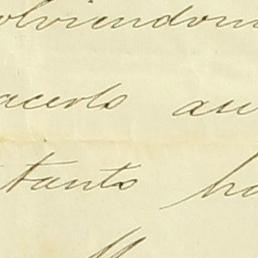 olviendom
acerlo au
tanto ha